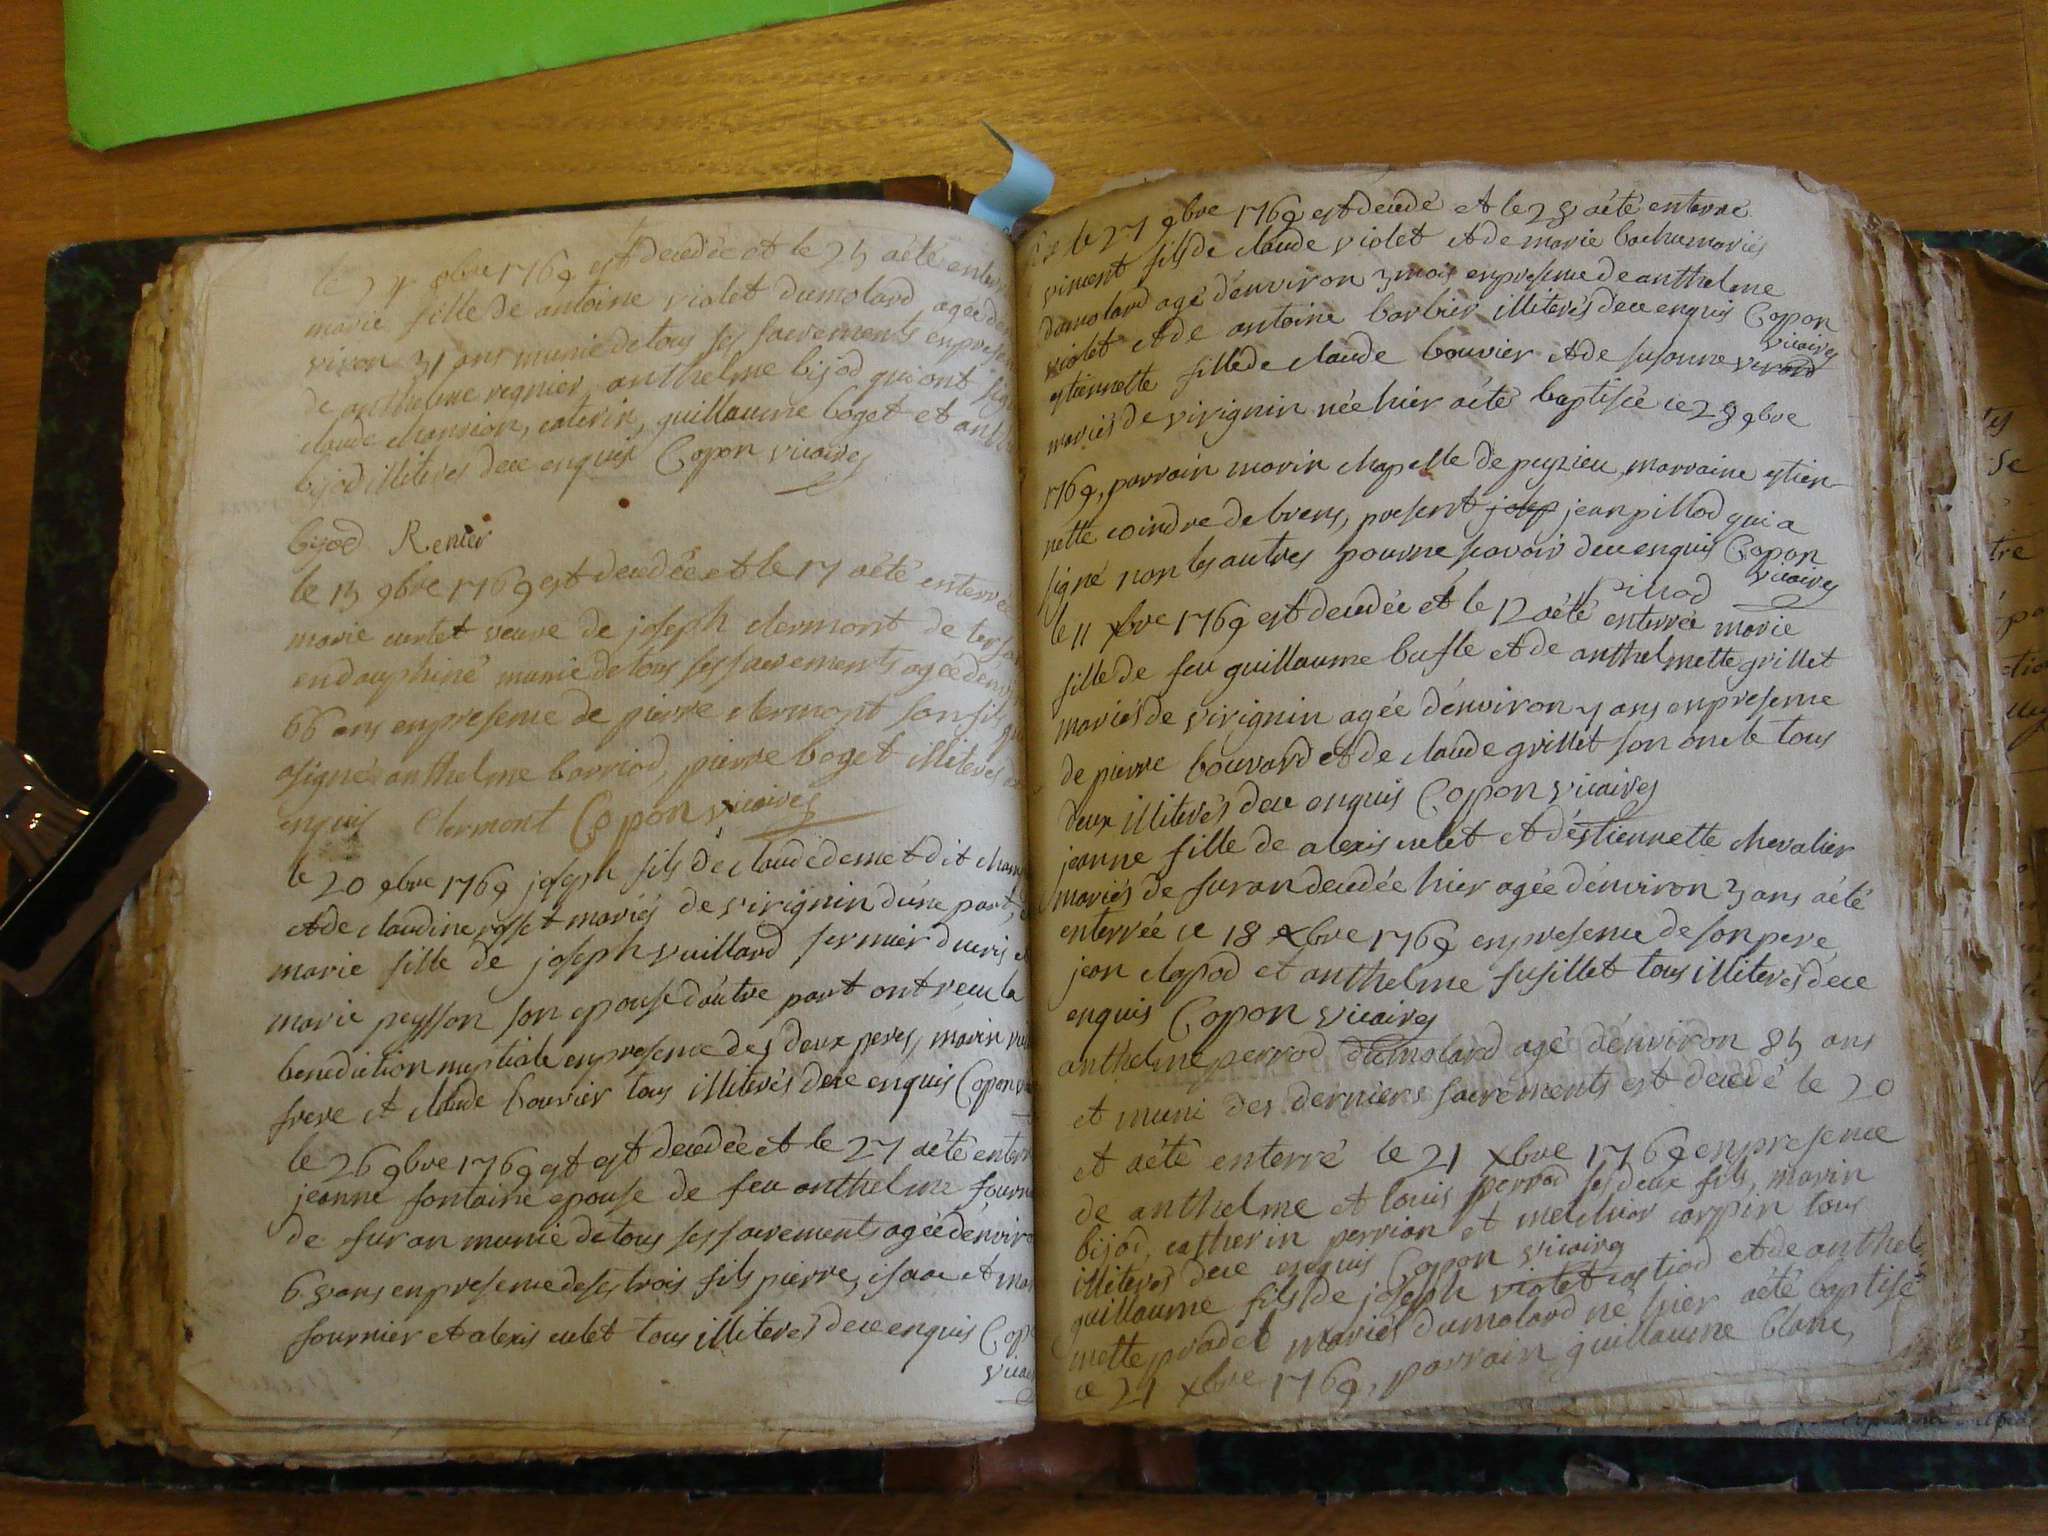 le 24 8bre 1769 est decedée et le 25 aété enterr
marie fille de antoine violet dumolard agée den
viron 31 ans munie de tous ses sacrements en presen
de anthelme regnier, anthelme bijod qui ont sig
claude chanvion, caterin, guillaume boget et anth
bijod illiteres dece enquis Copon vicaires
bijod Renier
le 15 9bre 1769 est decedée et le 17 aété enterrée
marie curtet veuve de joseph clermont de
en dauphiné munie de tous ses sacrements agée denv
66 ans en presence de pierre clermont son fils qui
a signé anthelme barriod, pierre boget illiteres de
enquis clermont Copon vicaires
le 20 9bre 1769 joseph fils de claude demet dit cham
et de claudine rosset mariés de virignin d'une part,
marie fille de joseph vuillard fermier
marie peysson son epouse d'autre part ont recu la
benediction nuptiale en presence des deux peres, marin
frere et claude bouvier tous illiterés dece enquis Copon
le 26 9bre 1769 est est decedée et le 27 aété enterr
jeanne fontaine epouse de feu anthelme fourn
de furan munie de tous ses sacrements agée d'enviro
65 ans en presence de ses trois fils pierre, isaac et mar
fournier et alexis culet tous illiterés dece enquis Cop
vicai
le 27 9bre 1769 est decedé et le 28 aété enterré
vincent fils de claude violet et de marie bachu mariés
dumolard agé d'environ 3 mois en presence de anthelme
violet et de antoine barbier illiterés dece enquis Copon
vicaires
estiennette fille de claude bouvier et de susanne
mariés de virignin née hier aété baptisée ce 28 9bre
1769, parrain marin chapelle de peyzieu, marraine estien-
nette coindre de brens, present josep jean pillod qui a
signé non les autres pour ne scavoir dece enquis Copon
Pillod vicaires
le 11 xbre 1769 est decedée et le 12 aété enterrée marie
fille de feu guillaume bufle et de anthelmette grillet
mariés de virignin agée d'environ 7 ans en presence
de pierre bouvard et de claude grillet son oncle tous
deux illiterés dece enquis Copon vicaires
jeanne fille de alexis culet et d'estiennette chevalier
mariés de furan decedée hier agée d'environ 3 ans aété
enterrée ce 18 xbre 1769 en presence de son pere,
jean clapod et anthelme fusillet tous illiterés dece
enquis Copon vicaires
anthelme perrod dumolard agé d'environ 85 ans
et muni des derniers sacrements est decedé le 20
et aété enterré le 21 xbre 1769 en presence
de anthelme et louis perrod ses deux fils, marin
bijod, catherin perrian et melchior carpin tous
illiteres dece enquis Copon vicaires
guillaume fils de joseph violet castiod et de anthel-
mette pradel mariés dumolard né hier aété baptisé
ce 21 xbre 1769, parrain guillaume blanc,